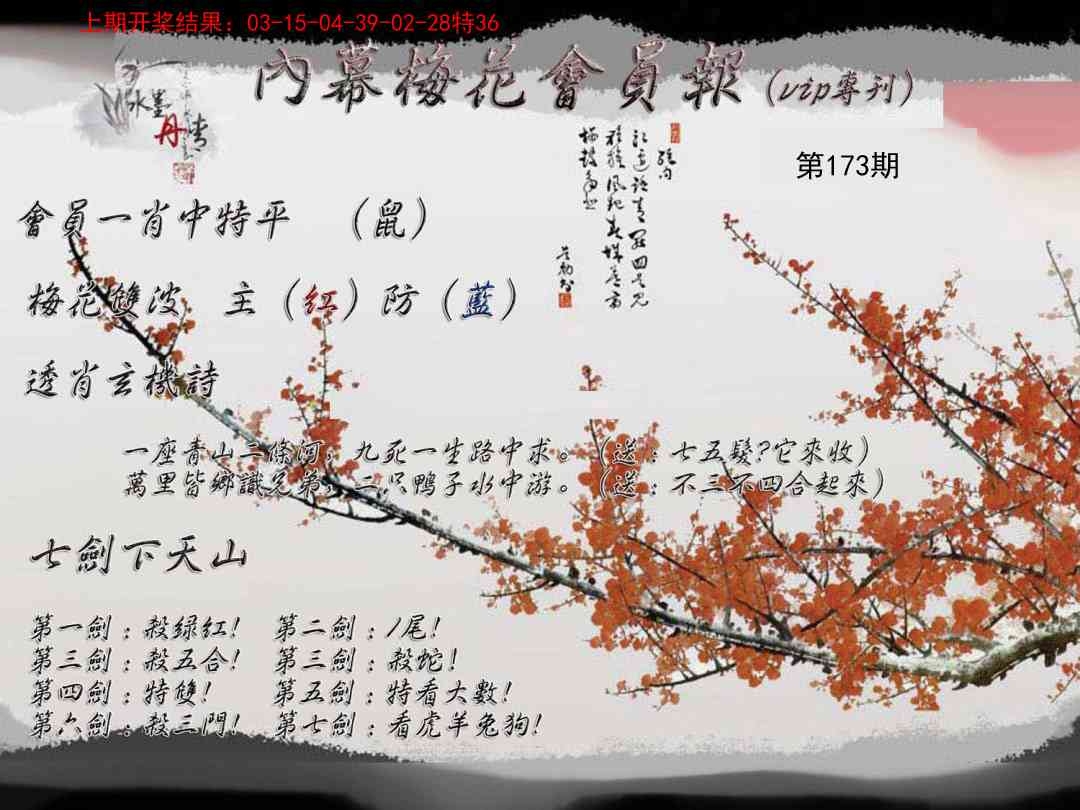 上期开奖结果：03-15-04-39-02-28特36
內幕梅花會員報（vip專刊）
水墨
丹青
第173期
會員一肖中特平 （鼠）
梅花雙波 主（红）防（藍）
透肖玄機詩
一座青山二條河，九死一生路中求。（送：七五髮?它來收）
萬里皆鄉識兄弟，二只鴨子水中游。（送：不三不四合起來）
七劍下天山
第一劍：殺緑红! 第二劍：1尾!
第三劍：殺五合! 第三劍：殺蛇!
第四劍：特雙! 第五劍：特看大數!
第六劍：殺三門! 第七劍：看虎羊兔狗!